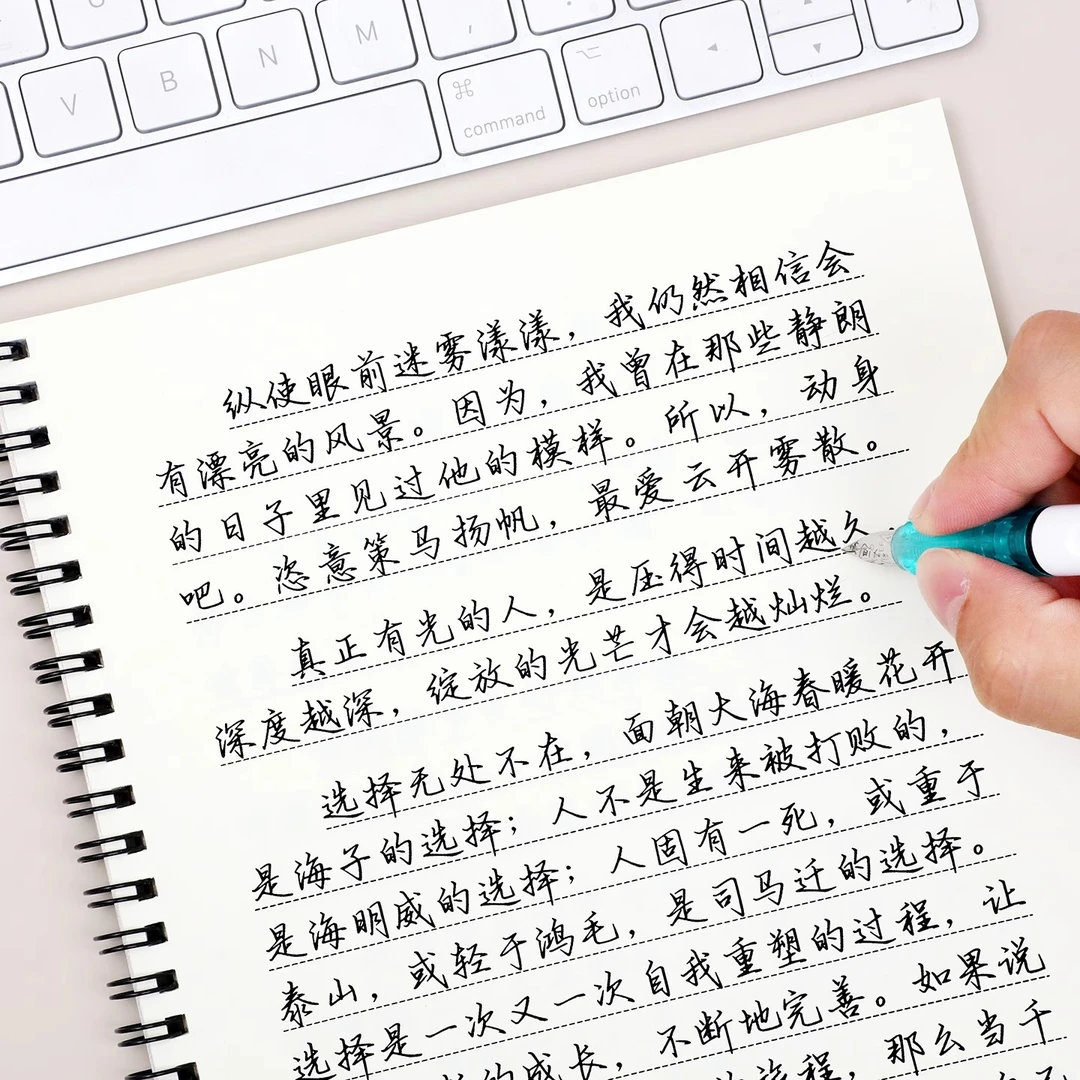 V
B
N
M
,
.
⌘
command
⌥
option
◀
▼
纵使眼前迷雾漾漾，我仍然相信会
有漂亮的风景。因为，我曾在那些静朗
的日子里见过他的模样。所以，动身
吧。恣意策马扬帆，最爱云开雾散。
真正有光的人，是压得时间越久
深度越深，绽放的光芒才会越灿烂。
选择无处不在，面朝大海春暖花开
是海子的选择；人不是生来被打败的，
是海明威的选择；人固有一死，或重于
泰山，或轻于鸿毛，是司马迁的选择。
选择是一次又一次自我重塑的过程，让
的成长，不断地完善。如果说
旅程，那么当千